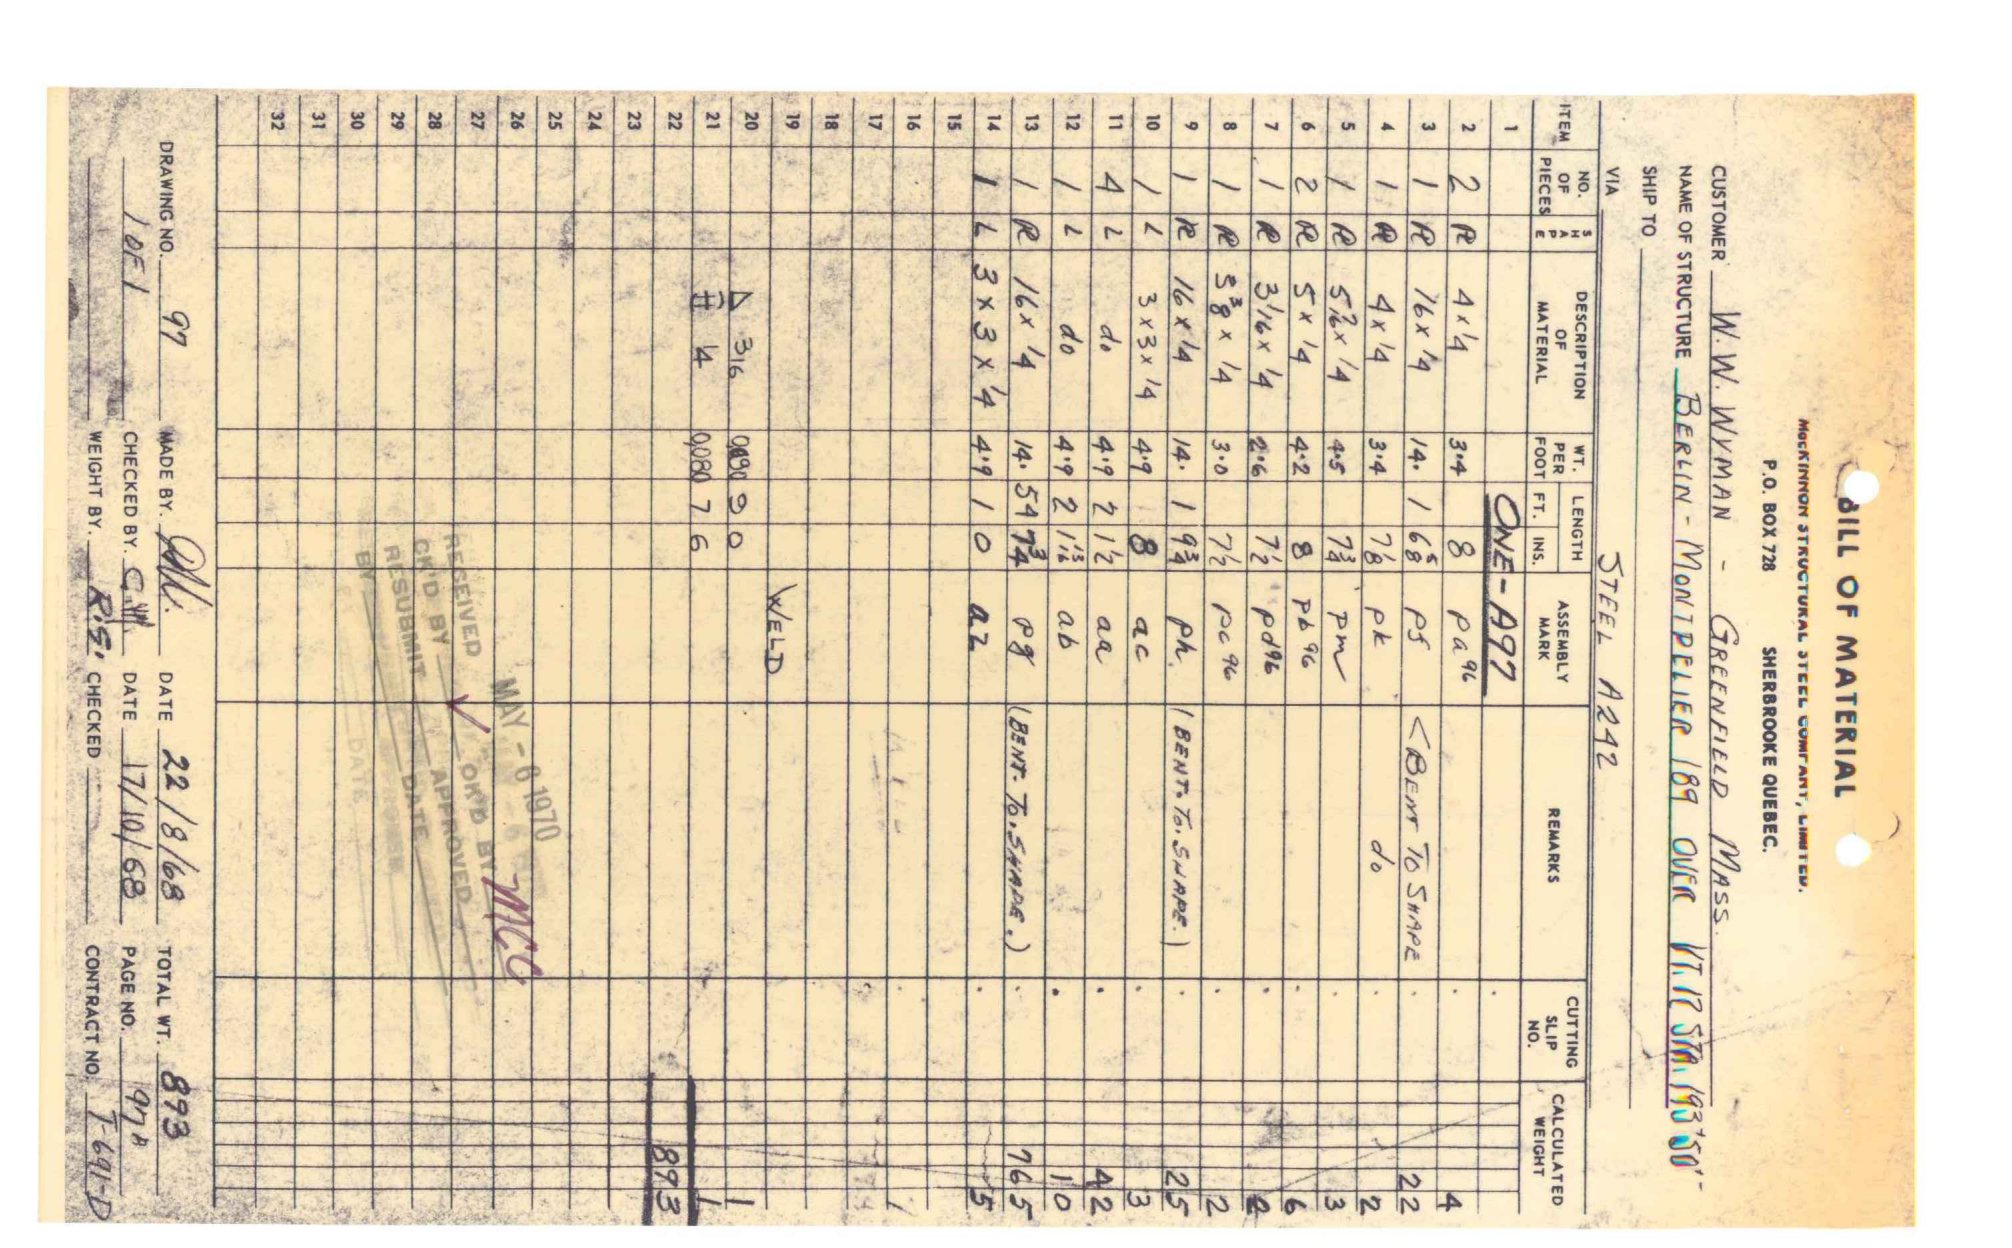 BILL OF MATERIAL
MacKINNON STRUCTURAL STEEL COMPANY, LIMITED.
P.O. BOX 728 SHERBROOKE QUEBEC.
CUSTOMER W. W. WYMAN - GREENFIELD MASS.
NAME OF STRUCTURE BERLIN - MONTPELIER 189 OVER VT. 12 STA. 193+50
SHIP TO
VIA STEEL A242
ITEM NO. OF PIECES SHAPE DESCRIPTION OF MATERIAL WT. PER FOOT LENGTH FT. INS. ASSEMBLY MARK REMARKS CUTTING SLIP NO. CALCULATED WEIGHT
1 ONE - A97
2 2 PL 4 x 1/4 3.4 8 pa96 4
3 1 PL 16 x 1/4 14. 1 6 5/8 pf < BENT TO SHAPE 22
4 1 PL 4 x 1/4 3.4 7 1/8 pk do 2
5 1 PL x 1/4 4.5 7 3/4 pm 3
6 2 PL 5 x 1/4 4.2 8 pb96 6
7 1 PL 3 1/16 x 1/4 2.6 7 1/2 pd96 2
8 1 PL 3 3/8 x 1/4 3.0 7 1/2 pc96 2
9 1 PL 16 x 1/4 14. 1 9 3/4 ph. (BENT. TO. SHAPE.) 25
10 1 L 3 x 3 x 1/4 4.9 8 ac 3
11 4 L do 4.9 2 1 1/2 aa 42
12 1 L do 4.9 2 1 13/16 ab 10
13 1 PL 16 x 1/4 14. 54 7 3/4 pg (BENT. TO. SHAPE.) 765
14 1 L 3 x 3 x 1/4 4.9 1 0 az 5
15
16
17
18
19 WELD
20 3/16 9 0 1
21 1/4 7 6 1
22 893
23
24
25
26
27
28
29
30
31
32
MAY - 6 1970
RECEIVED
CK'D BY OK'D BY MCC
RESUBMIT APPROVED
BY DATE
DRAWING NO. 97 MADE BY. DATE 22/8/68 TOTAL WT. 893
1 OF 1 CHECKED BY. DATE 17/10/68 PAGE NO. 97A
WEIGHT BY. R.E. CHECKED CONTRACT NO. T-691-D